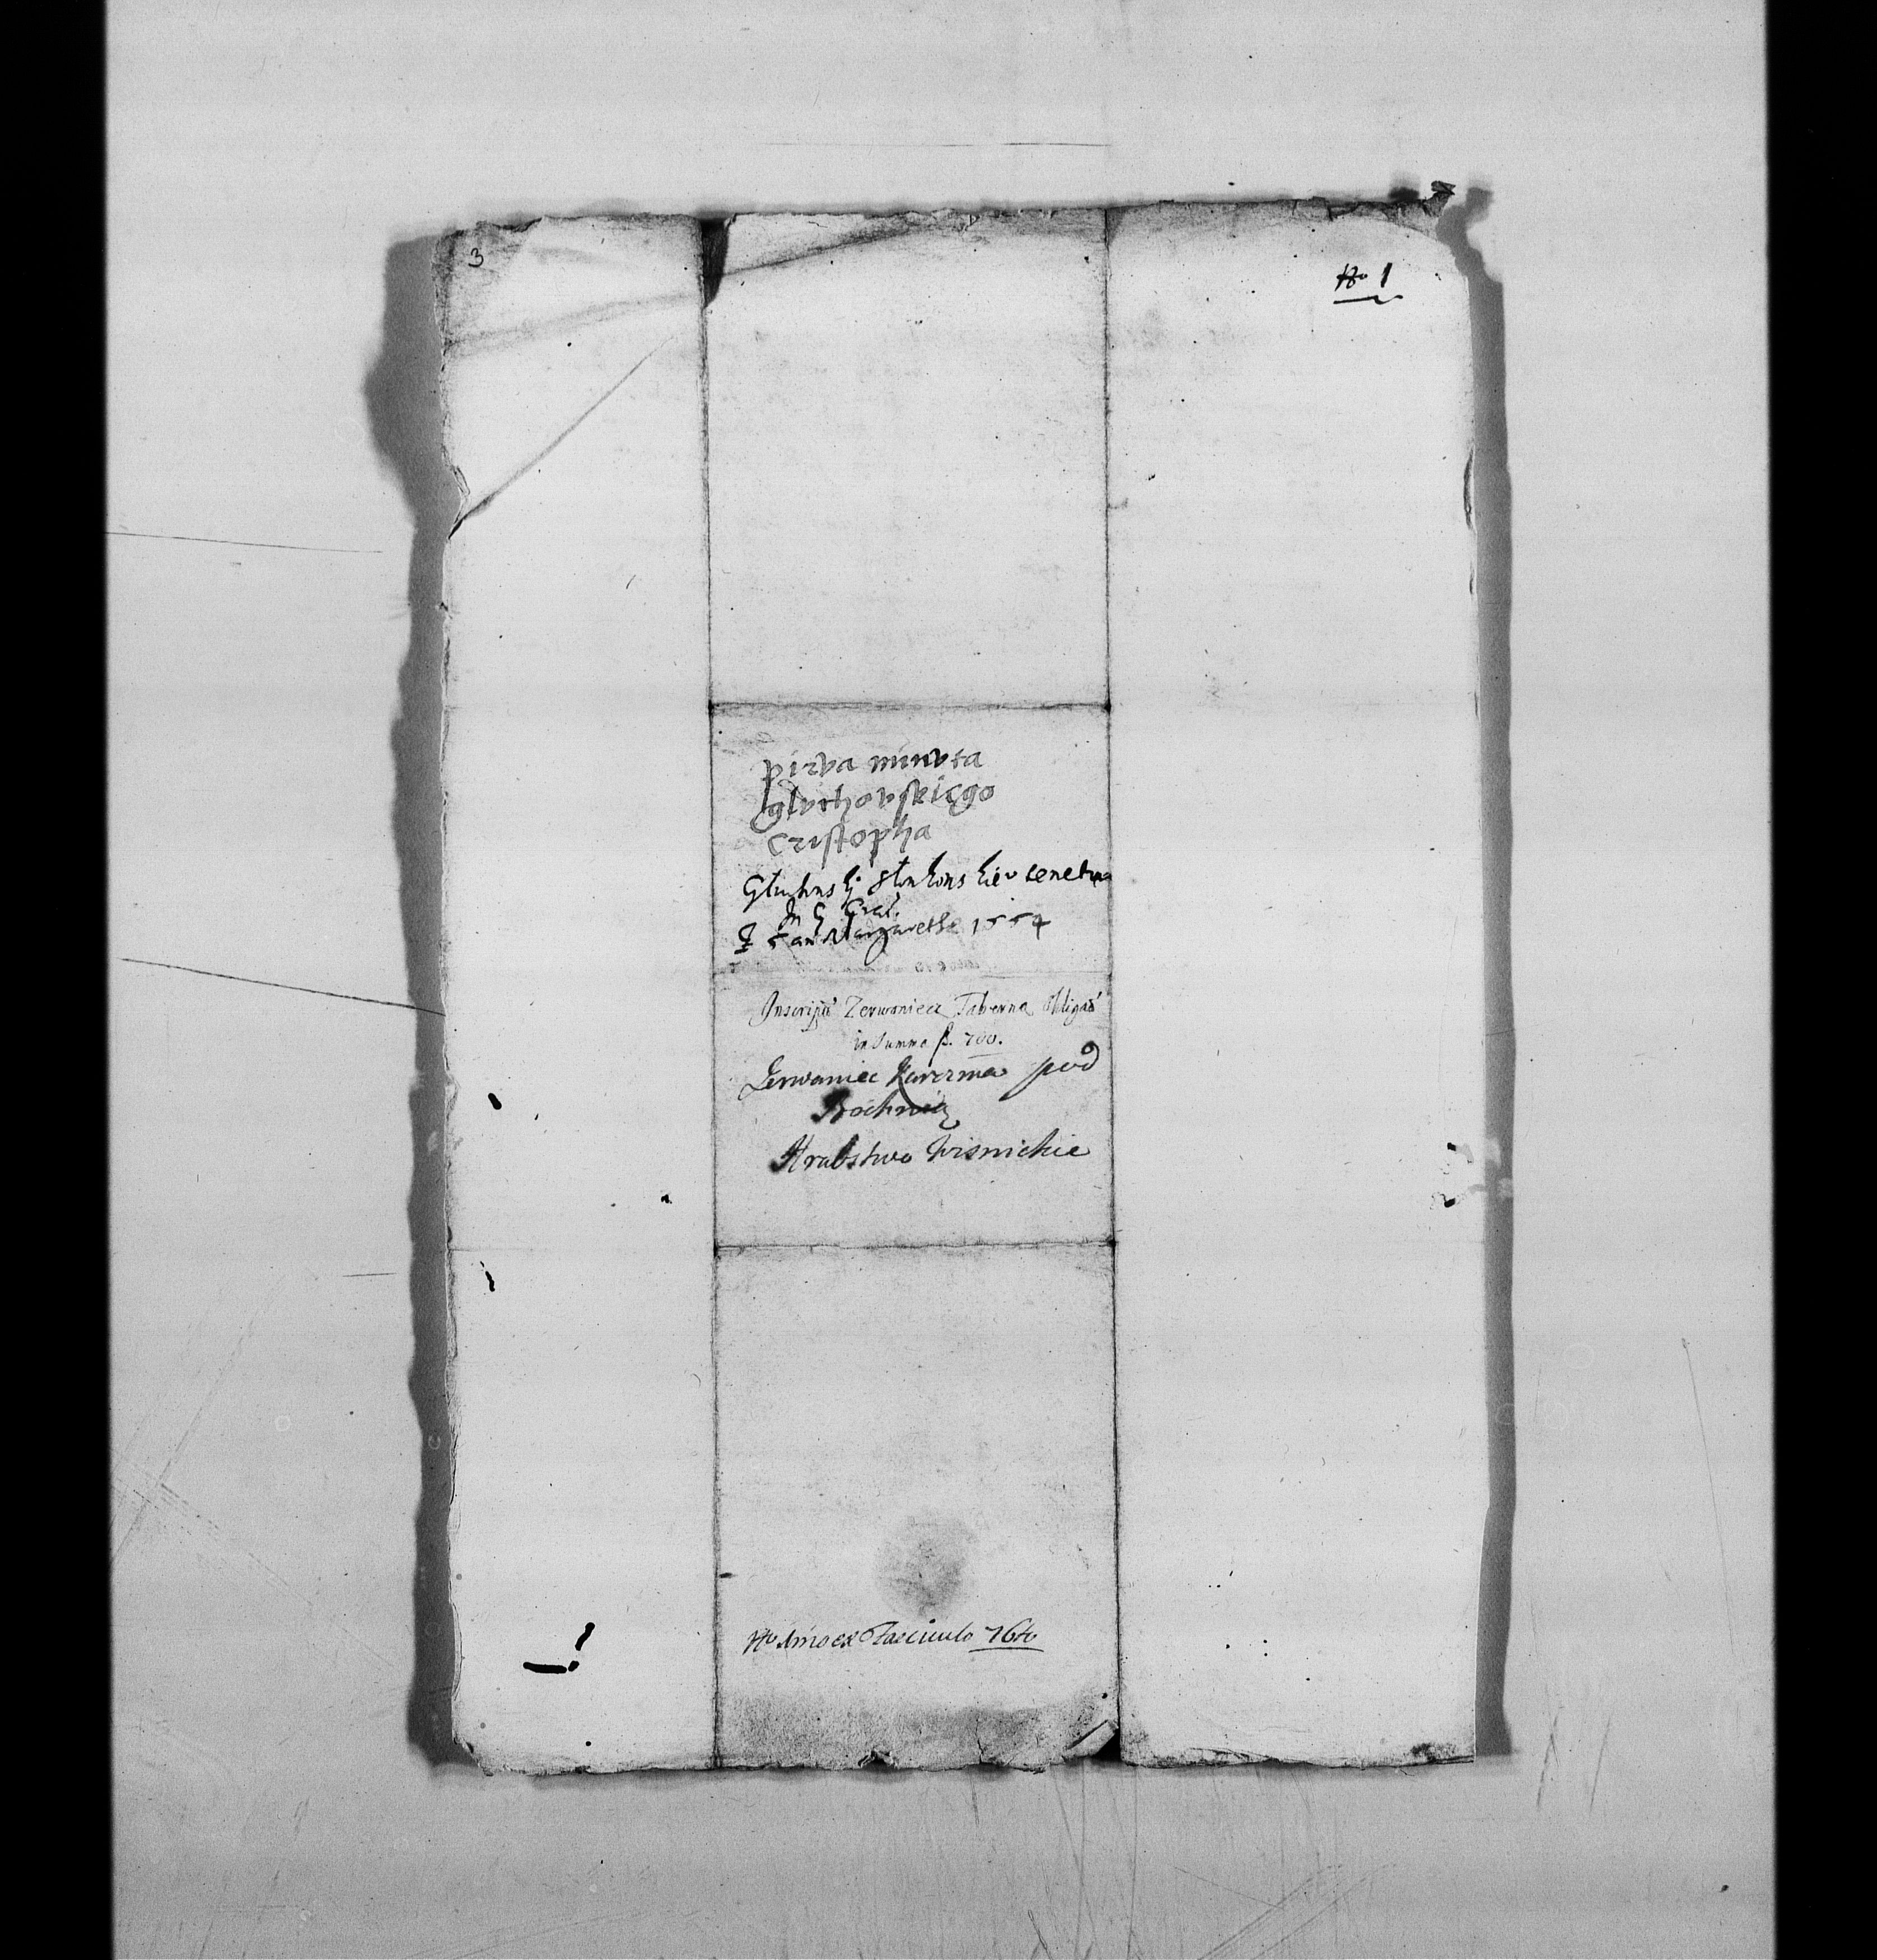 3
No 1
pirva minvta
glvchovskięgo
Cristopha
Głuchows
1554
Inscript Zerwaniecz Taberna Obligat
in Summa fl. 700.
Zerwaniec Karczma pod
Bochnią
Hrabstwo Wisnickie
No 1mo ex Fasciculo 76to